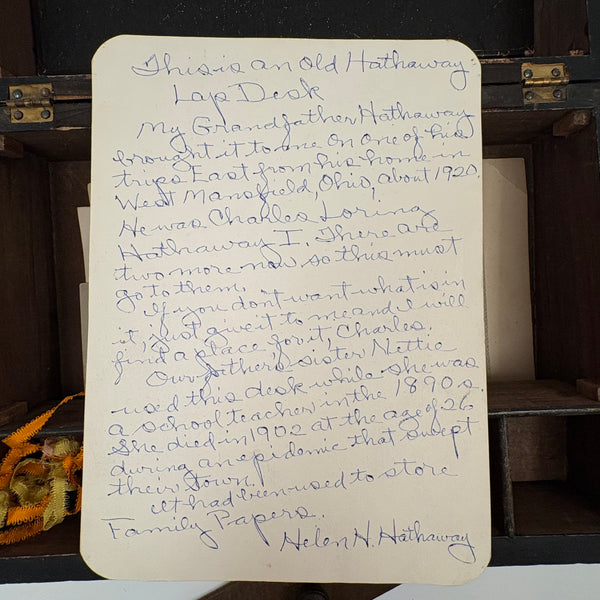 This is an old Hathaway
Lap Desk
My Grandfather Hathaway
brought it to me on one of his
trips East from his home in
West Mansfield, Ohio, about 1920.
He was Charles Loring
Hathaway I. There are
two more now so this must
go to them.
If you don't want what is in
it, just give it to me and I will
find a place for it, Charles.
Our father's sister Nettie
used this desk while she was
a school teacher in the 1890s.
She died in 1902 at the age of 26
during an epidemic that swept
their town.
It had been used to store
Family Papers.
Helen H. Hathaway